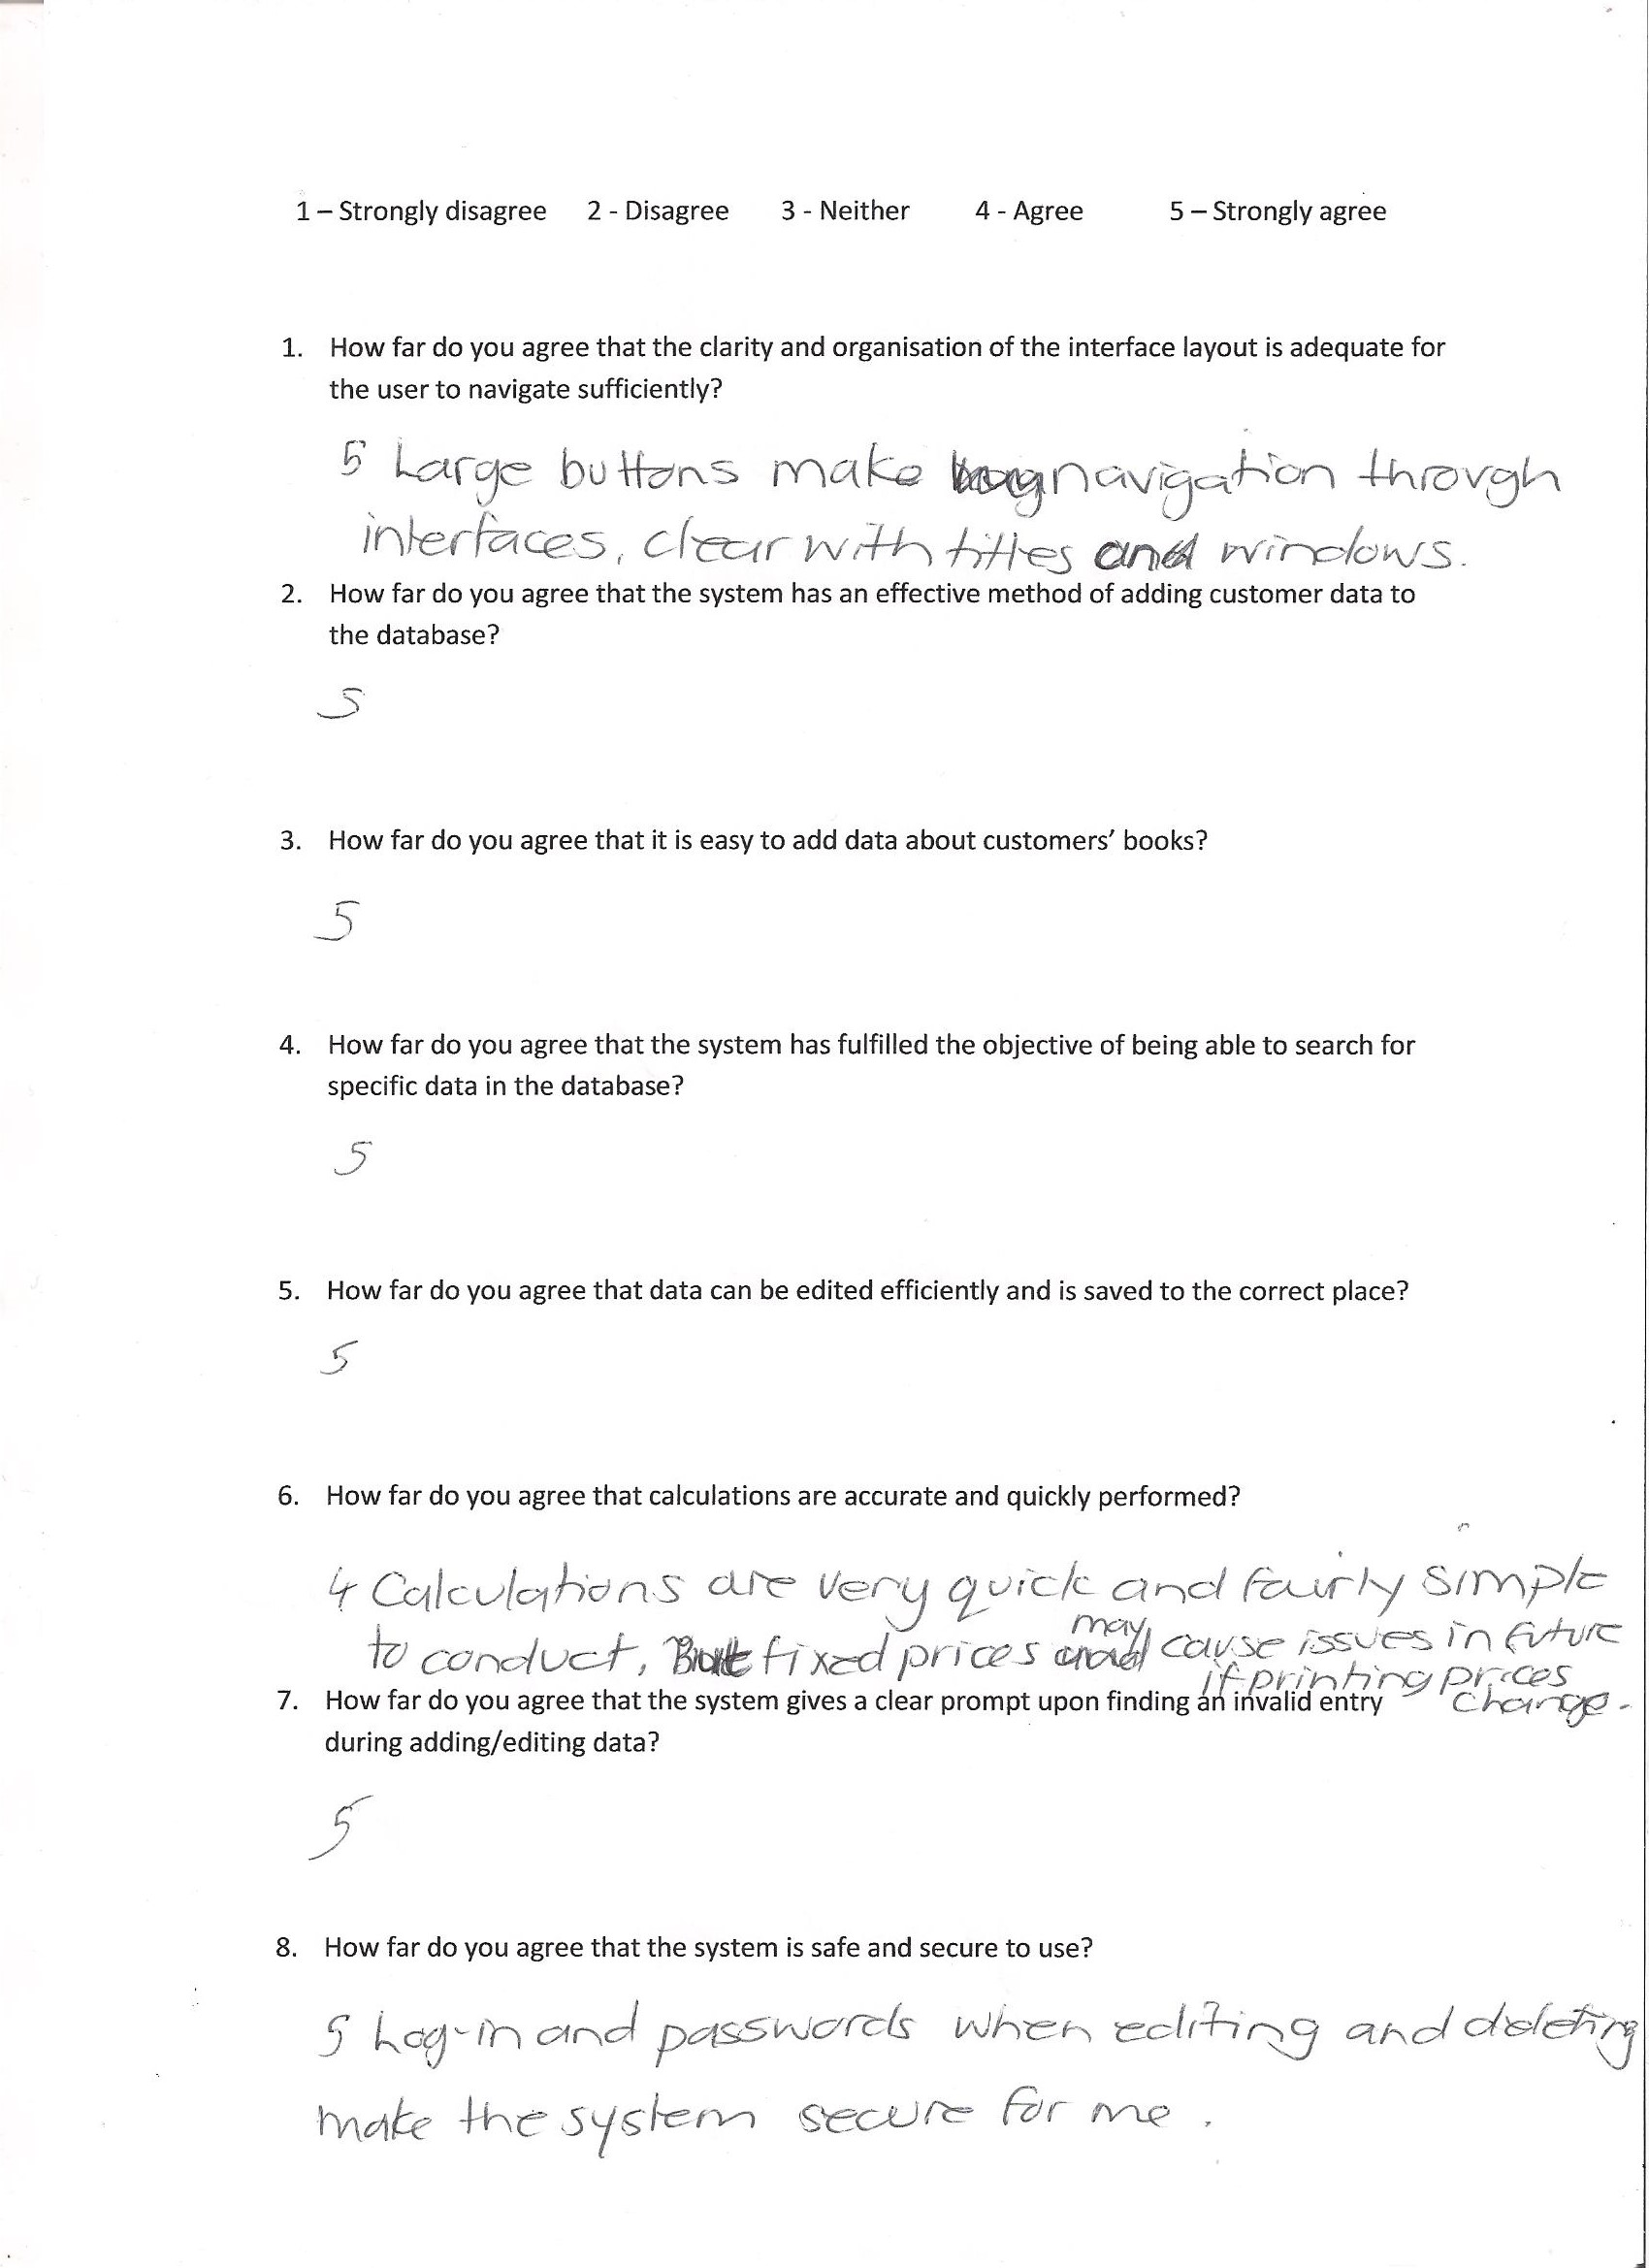 1 – Strongly disagree 2 - Disagree 3 - Neither 4 - Agree 5 – Strongly agree
1. How far do you agree that the clarity and organisation of the interface layout is adequate for
the user to navigate sufficiently?
5 Large buttons make navigation through
interfaces, clear with titles and windows.
2. How far do you agree that the system has an effective method of adding customer data to
the database?
5
3. How far do you agree that it is easy to add data about customers’ books?
5
4. How far do you agree that the system has fulfilled the objective of being able to search for
specific data in the database?
5
5. How far do you agree that data can be edited efficiently and is saved to the correct place?
5
6. How far do you agree that calculations are accurate and quickly performed?
4 Calculations are very quick and fairly simple
to conduct, But fixed prices may cause issues in future
if printing prices
change.
7. How far do you agree that the system gives a clear prompt upon finding an invalid entry
during adding/editing data?
5
8. How far do you agree that the system is safe and secure to use?
5 Log-in and passwords when editing and deleting
make the system secure for me.